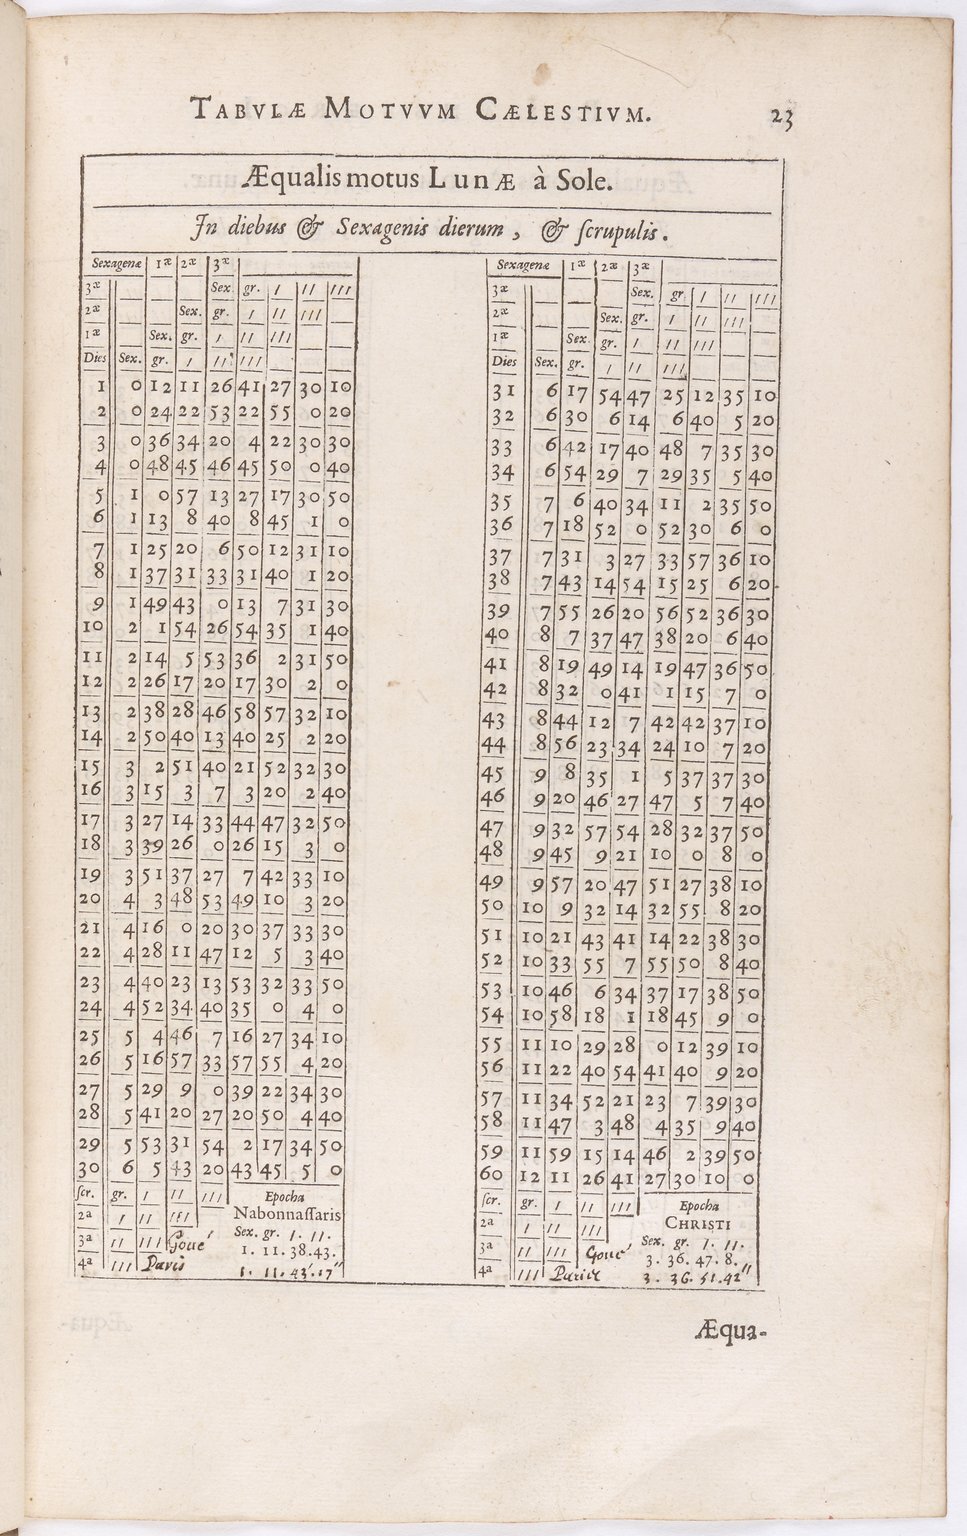 TABVLÆ MOTVVM CÆLESTIVM. 23
Æqualis motus LUNÆ à Sole.
In diebus & Sexagenis dierum, & ſcrupulis.
Sexagenæ 1æ 2æ 3æ
3æ Sex. gr. / // ///
2æ Sex. gr. / // ///
1æ Sex. gr. / // ///
Dies Sex. gr. / // ///
1 0 12 11 26 41 27 30 10
2 0 24 22 53 22 55 0 20
3 0 36 34 20 4 22 30 30
4 0 48 45 46 45 50 0 40
5 1 0 57 13 27 17 30 50
6 1 13 8 40 8 45 1 0
7 1 25 20 6 50 12 31 10
8 1 37 31 33 31 40 1 20
9 1 49 43 0 13 7 31 30
10 2 1 54 26 54 35 1 40
11 2 14 5 53 36 2 31 50
12 2 26 17 20 17 30 2 0
13 2 38 28 46 58 57 32 10
14 2 50 40 13 40 25 2 20
15 3 2 51 40 21 52 32 30
16 3 15 3 7 3 20 2 40
17 3 27 14 33 44 47 32 50
18 3 39 26 0 26 15 3 0
19 3 51 37 27 7 42 33 10
20 4 3 48 53 49 10 3 20
21 4 16 0 20 30 37 33 30
22 4 28 11 47 12 5 3 40
23 4 40 23 13 53 32 33 50
24 4 52 34 40 35 0 4 0
25 5 4 46 7 16 27 34 10
26 5 16 57 33 57 55 4 20
27 5 29 9 0 39 22 34 30
28 5 41 20 27 20 50 4 40
29 5 53 31 54 2 17 34 50
30 6 5 43 20 43 45 5 0
ſcr. gr. / // /// Epocha
2a / // /// Nabonnaſſaris
3a // /// Goué Sex. gr. /. //.
1. 11. 38. 43.
4a /// Paris 1. 11. 43'. 17''
Sexagenæ 1æ 2æ 3æ
3æ Sex. gr. / // ///
2æ Sex. gr. / // ///
1æ Sex. gr. / // ///
Dies Sex. gr. / // ///
31 6 17 54 47 25 12 35 10
32 6 30 6 14 6 40 5 20
33 6 42 17 40 48 7 35 30
34 6 54 29 7 29 35 5 40
35 7 6 40 34 11 2 35 50
36 7 18 52 0 52 30 6 0
37 7 31 3 27 33 57 36 10
38 7 43 14 54 15 25 6 20
39 7 55 26 20 56 52 36 30
40 8 7 37 47 38 20 6 40
41 8 19 49 14 19 47 36 50
42 8 32 0 41 1 15 7 0
43 8 44 12 7 42 42 37 10
44 8 56 23 34 24 10 7 20
45 9 8 35 1 5 37 37 30
46 9 20 46 27 47 5 7 40
47 9 32 57 54 28 32 37 50
48 9 45 9 21 10 0 8 0
49 9 57 20 47 51 27 38 10
50 10 9 32 14 32 55 8 20
51 10 21 43 41 14 22 38 30
52 10 33 55 7 55 50 8 40
53 10 46 6 34 37 17 38 50
54 10 58 18 1 18 45 9 0
55 11 10 29 28 0 12 39 10
56 11 22 40 54 41 40 9 20
57 11 34 52 21 23 7 39 30
58 11 47 3 48 4 35 9 40
59 11 59 15 14 46 2 39 50
60 12 11 26 41 27 30 10 0
ſcr. gr. / // /// Epocha
2a / // /// CHRISTI
3a // /// Goué Sex. gr. /. //.
3. 36. 47. 8.
4a /// 3. 36. 51. 42''
Æqua-